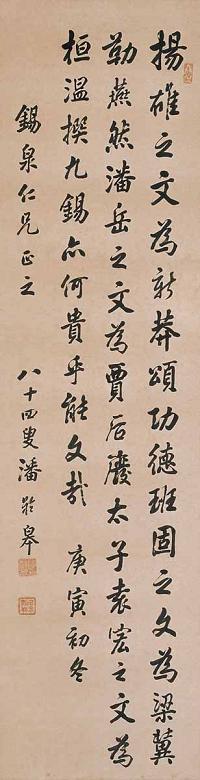 揚雄之文為新莽頌功德班固之文為梁冀
勒燕然潘岳之文為賈后廢太子袁宏之文為
桓溫撰九錫亦何貴乎能文哉 庚寅初冬
錫泉仁兄正之 八十四叟潘齡皋